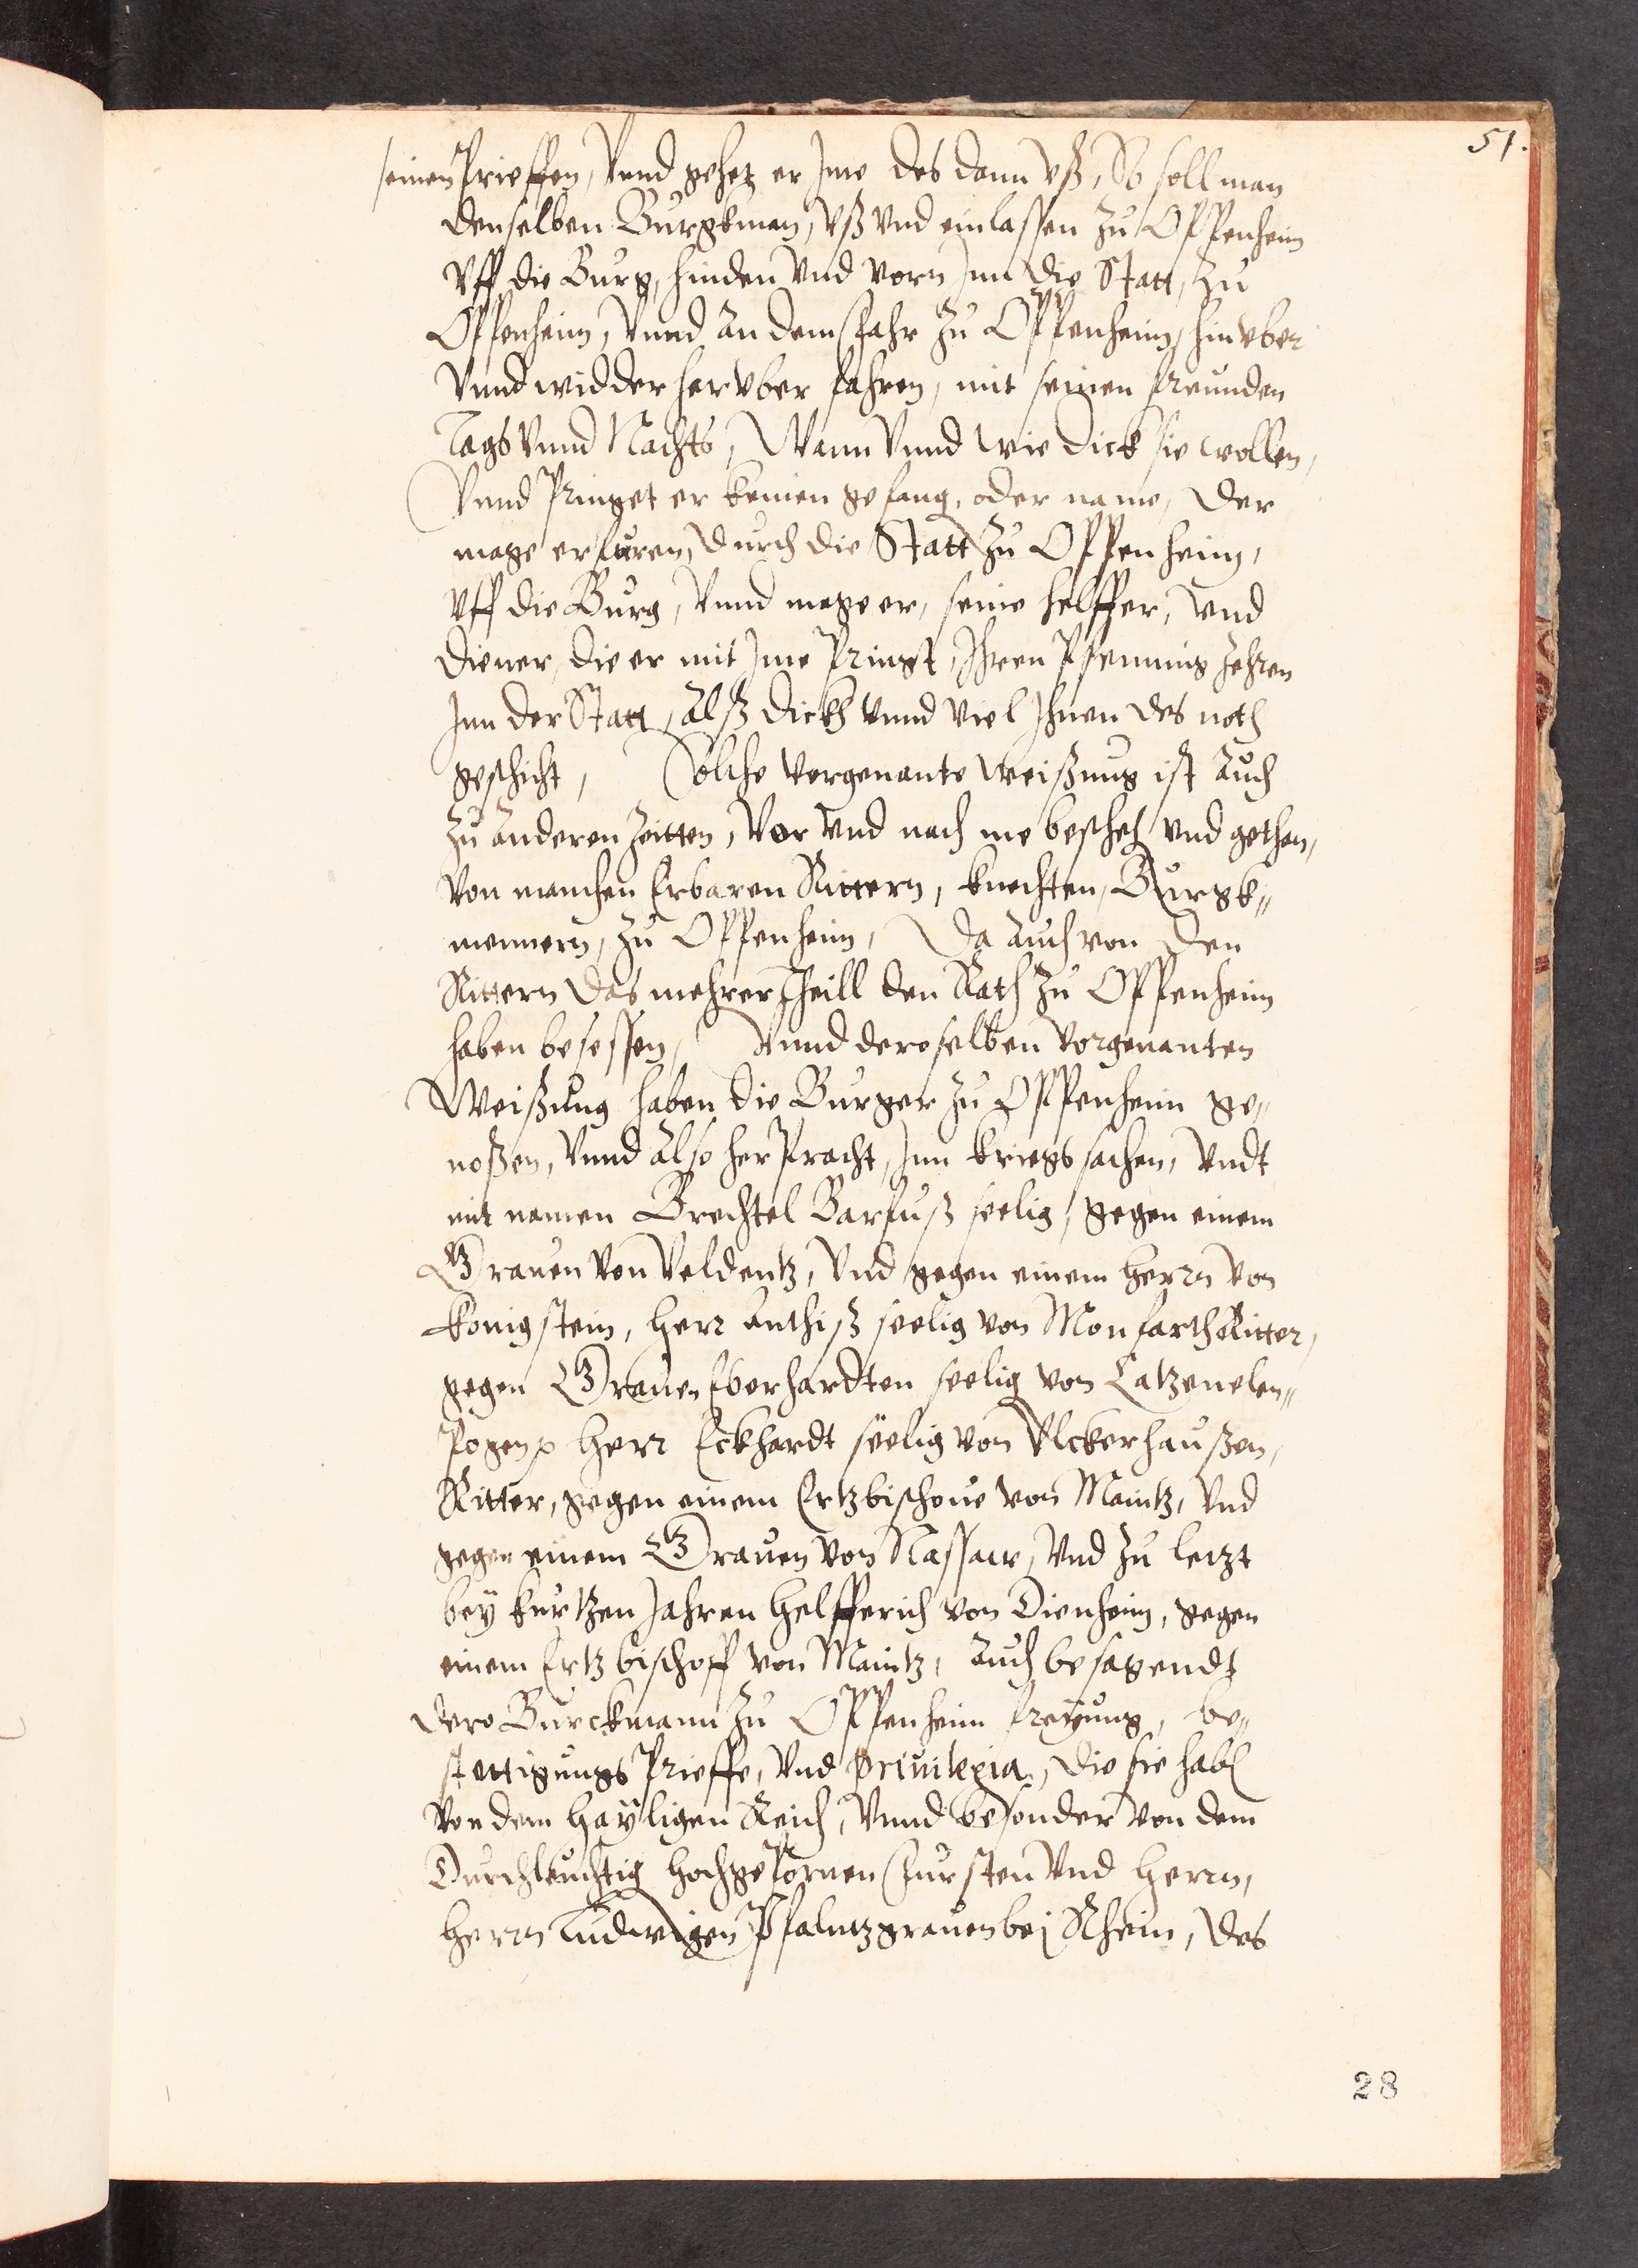 51.
seinen Prieffen, Vnnd gehet er Jme des dann vß, So soll man
denselben Burgkman, vß vnd einlassen zu Oppenheim
vff die Burg, hinden vnd vorn Jnn die Statt, zu
Oppenheim, Vnnd an dem Fahr zu Oppenheim, hinvber
Vnnd widder harvber fahren, mit seinen freunden
Tags Vnnd Nachts, Wann Vnnd wie dick sie wollen,
Vnnd Pringet er keinen gefang, oder name, der
mage er furen, durch die Statt zu Oppenheim,
vff die Burg, Vnnd mage er, seine helffer, vnd
diener, die er mit Jme Pringt, Jhren Pfenning zehren
Jnn der Statt, alß dickh vnnd viel Jhnen des noth
geschicht, Solche vorgenante weißung ist auch
zu anderen Zeitten, Vor vnd nach me bescheh vnd gethan,
von manchen Erbaren Rittern, knechten, Burgk„
mennern, zu Oppenheim, Da auch von den
Rittern das mehrer Theill den Rath zu Oppenheim
haben besessen, Vnnd deroselben vorgenanten
Weißung haben die Burger zu Oppenheim ge„
noßen, Vnnd also her Pracht, Jnn kriegs sachen, Vndt
mit namen Brechtel Barfuß seelig, gegen einem
Grauen von Veldentz, Vnd gegen einem Herrn von
Konigstein, Herr Anthiß seelig von Monfarth Ritter,
gegen Grauen Eberhardten seelig von Catzenelen„
Pogen, Herr Eckhardt seelig von Elckerhaußen,
Ritter, gegen einem Ertzbischoue von Maintz, Vnd
gegen einem Grauen von Nassaw, Vnd zu letzt
bey kurtzen Jahren Helfferich von Dienheim, gegen
einem Ertzbischoff von Maintz, Auch besagendt
dero Burckmann zu Oppenheim freyung, be„
stettigungs Prieffe, Vnd priuilegia, die sie hab
von dem Hayligen Reich, Vnnd besonder von dem
Durchleuchtig Hochgepornen Fursten Vnd Herrn,
Herrn Ludwigen Pfaltzgrauen bej Rhein, des
28